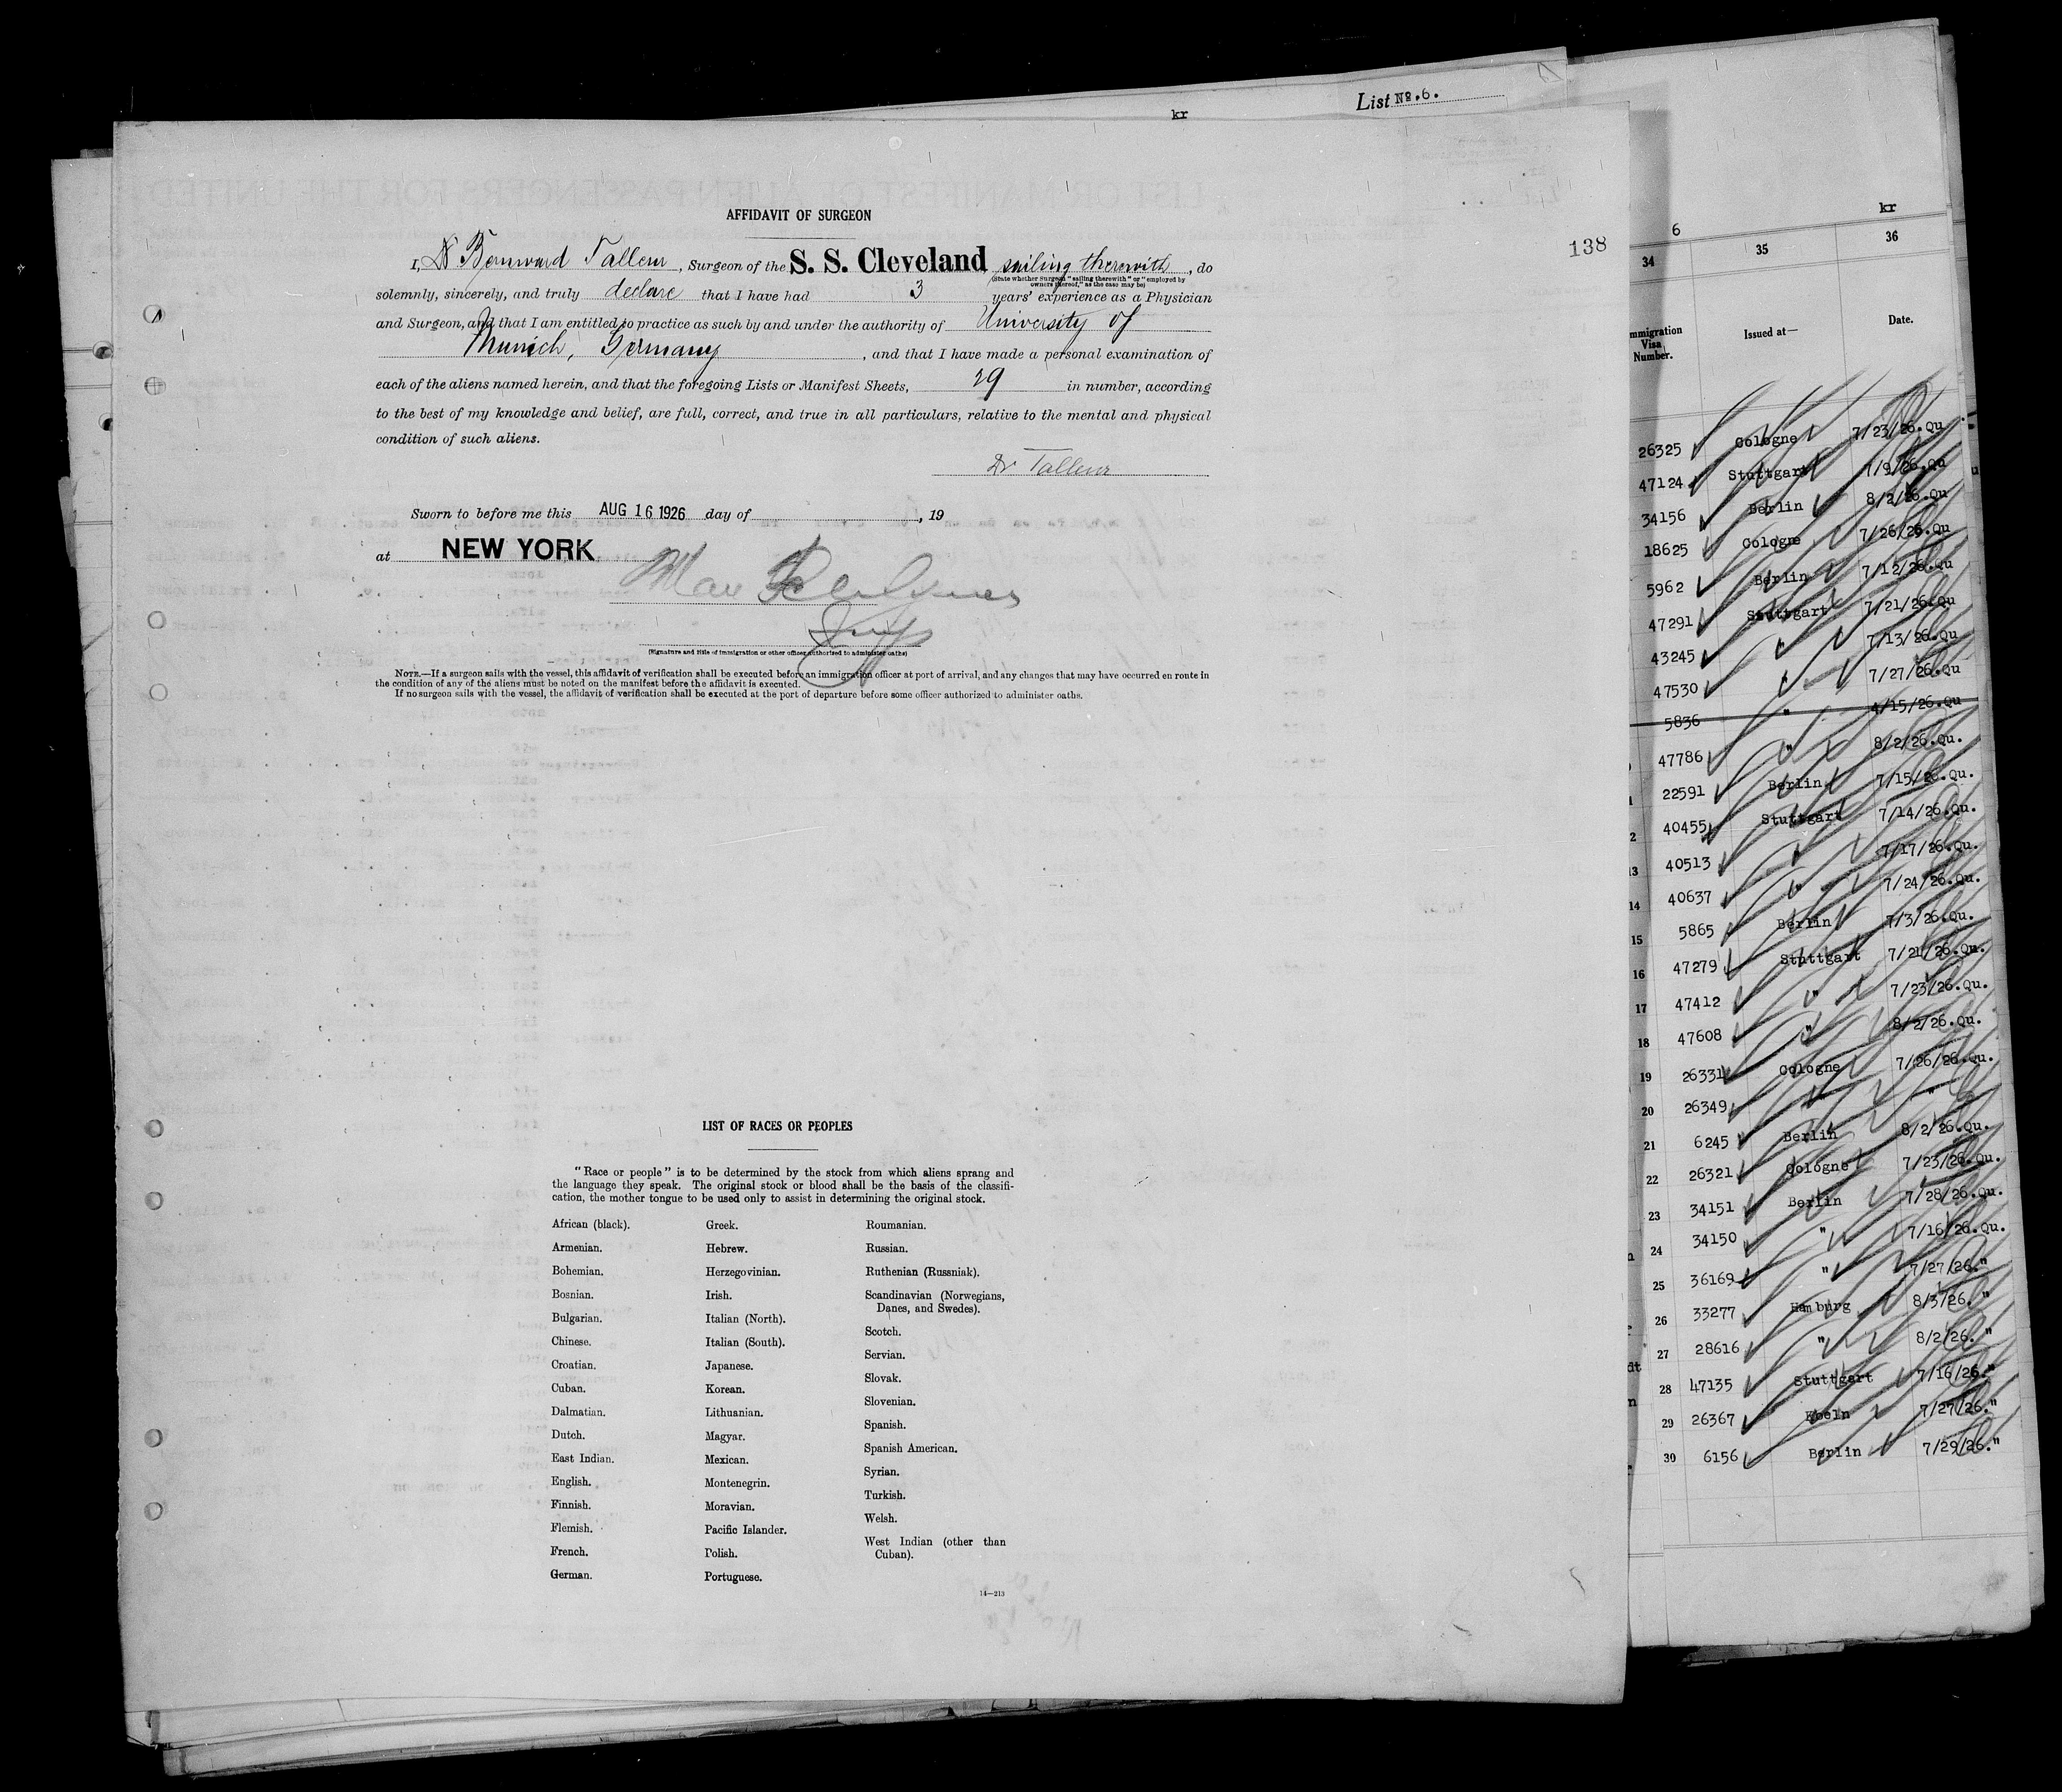 List No. 6.
kr
AFFIDAVIT OF SURGEON
138
I, Dr Bernward Tallem, Surgeon of the S. S. Cleveland sailing therewith, do
(State whether Surgeon "sailing therewith" or "employed by
owners thereof," as the case may be)
solemnly, sincerely, and truly declare that I have had 3 years' experience as a Physician
and Surgeon, and that I am entitled to practice as such by and under the authority of University of
Munich, Germany, and that I have made a personal examination of
each of the aliens named herein, and that the foregoing Lists or Manifest Sheets, 29 in number, according
to the best of my knowledge and belief, are full, correct, and true in all particulars, relative to the mental and physical
condition of such aliens.
Dr Tallem
Sworn to before me this AUG 16 1926 day of , 19
at NEW YORK
Max
Insp
(Signature and title of immigration or other officer authorized to administer oaths)
NOTE.—If a surgeon sails with the vessel, this affidavit of verification shall be executed before an immigration officer at port of arrival, and any changes that may have occurred en route in
the condition of any of the aliens must be noted on the manifest before the affidavit is executed.
If no surgeon sails with the vessel, the affidavit of verification shall be executed at the port of departure before some officer authorized to administer oaths.
LIST OF RACES OR PEOPLES
"Race or people" is to be determined by the stock from which aliens sprang and
the language they speak. The original stock or blood shall be the basis of the classifi-
cation, the mother tongue to be used only to assist in determining the original stock.
African (black).
Armenian.
Bohemian.
Bosnian.
Bulgarian.
Chinese.
Croatian.
Cuban.
Dalmatian.
Dutch.
East Indian.
English.
Finnish.
Flemish.
French.
German.
Greek.
Hebrew.
Herzegovinian.
Irish.
Italian (North).
Italian (South).
Japanese.
Korean.
Lithuanian.
Magyar.
Mexican.
Montenegrin.
Moravian.
Pacific Islander.
Polish.
Portuguese.
Roumanian.
Russian.
Ruthenian (Russniak).
Scandinavian (Norwegians,
Danes, and Swedes).
Scotch.
Servian.
Slovak.
Slovenian.
Spanish.
Spanish American.
Syrian.
Turkish.
Welsh.
West Indian (other than
Cuban).
14—213
kr
6
34 35 36
Immigration
Visa
Number.
Issued at—
Date.
26325 Cologne 7/23/26.Qu
47124 Stuttgart 7/9/26.Qu
34156 Berlin 8/2/26.Qu
18625 Cologne 7/26/26.Qu
5962 Berlin 7/12/26.Qu
47291 Stuttgart 7/21/26.Qu
43245 " 7/13/26.Qu
47530 " 7/27/26.Qu
5836 " 4/15/26.Qu
47786 " 8/2/26.Qu.
22591 Berlin 7/15/26.Qu.
40455 Stuttgart 7/14/26.Qu.
13 40513 " 7/17/26.Qu.
14 40637 " 7/24/26.Qu.
15 5865 Berlin 7/3/26.Qu.
16 47279 Stuttgart 7/21/26.Qu.
17 47412 " 7/23/26.Qu.
18 47608 " 8/2/26.Qu.
19 26331 Cologne 7/26/26.Qu.
20 26349 " "
21 6245 Berlin 8/2/26.Qu.
22 26321 Cologne 7/23/26.Qu.
23 34151 Berlin 7/28/26.Qu.
24 34150 " 7/16/26.Qu.
25 36169 " 7/27/26."
26 33277 Hamburg 8/3/26. "
27 28616 " 8/2/26. "
28 47135 Stuttgart 7/16/26."
29 26367 Koeln 7/27/26."
30 6156 Berlin 7/29/26."